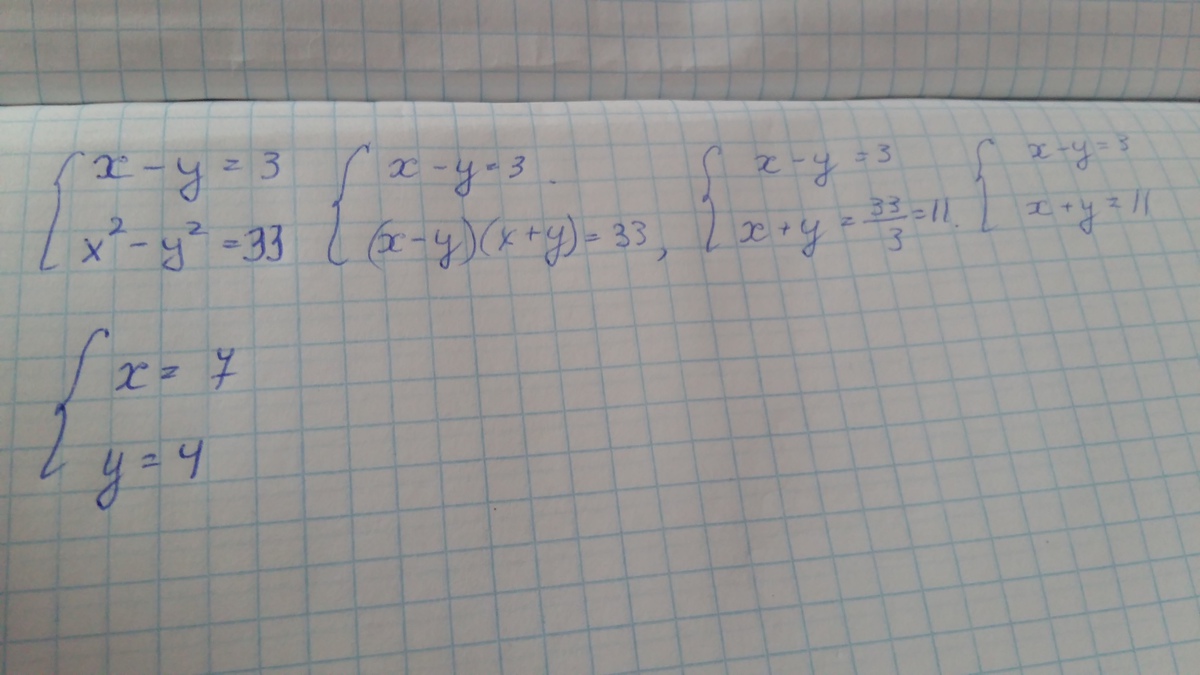 x - y = 3
x² - y² = 33
x - y = 3
(x - y)(x + y) = 33,
x - y = 3
x + y = 33/3 = 11.
x - y = 3
x + y = 11
x = 7
y = 4